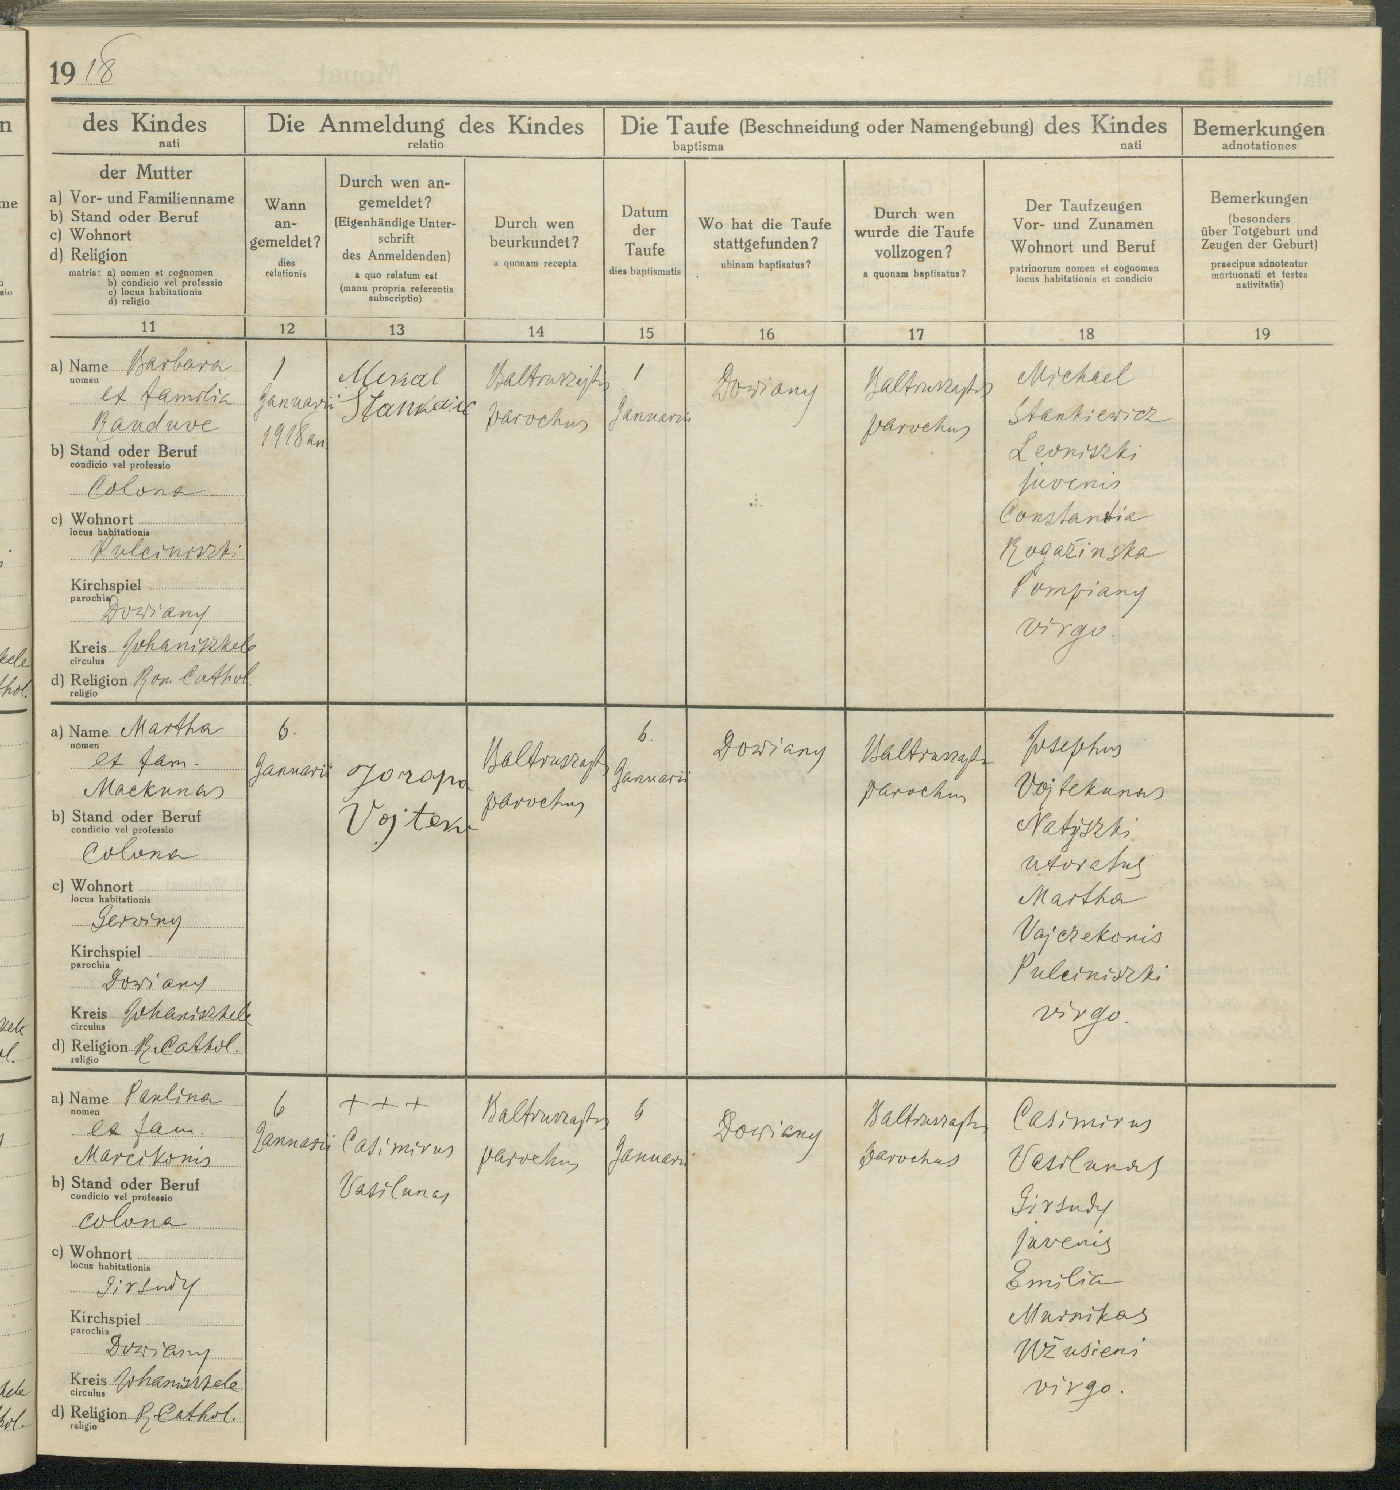 19 18
des Kindes
nati
Die Anmeldung des Kindes
relatio
Die Taufe (Beschneidung oder Namengebung) des Kindes
baptisma nati
Bemerkungen
adnotationes
der Mutter
a) Vor- und Familienname
b) Stand oder Beruf
c) Wohnort
d) Religion
matris: a) nomen et cognomen
b) condicio vel professio
c) locus habitationis
d) religio
Wann
an-
gemeldet?
dies
relationis
Durch wen an-
gemeldet?
(Eigenhändige Unter-
schrift
des Anmeldenden)
a quo relatum est
(manu propria referentis
subscriptio)
Durch wen
beurkundet?
a quonam recepta
Datum
der
Taufe
dies baptismatis
Wo hat die Taufe
stattgefunden?
ubinam baptisatus?
Durch wen
wurde die Taufe
vollzogen?
a quonam baptisatus?
Der Taufzeugen
Vor- und Zunamen
Wohnort und Beruf
patrinorum nomen et cognomen
locus habitationis et condicio
Bemerkungen
(besonders
über Totgeburt und
Zeugen der Geburt)
praecipue adnotentur
mortuonati et testes
nativitatis)
11 12 13 14 15 16 17 18 19
a) Name Barbara
nomen
et familia
Randuve
b) Stand oder Beruf
condicio vel professio
Colona
c) Wohnort
locus habitationis
Pulciniszki
Kirchspiel
parochia
Dowiany
Kreis Johaniszkele
circulus
d) Religion Rom. Cathol.
religio
1
Januarii
1918 an
Baltruszajtis
parochus
1
Januarii
Dowiany
Baltruszajtis
parochus
Michael
Stankiewicz
Leoniszki
juvenis
Constantia
Rogažinska
Pompiany
virgo.
a) Name Martha
nomen
et fam.
Mackunas
b) Stand oder Beruf
condicio vel professio
Colona
c) Wohnort
locus habitationis
Gerviny
Kirchspiel
parochia
Dowiany
Kreis Johaniszkele
circulus
d) Religion R. Cathol.
religio
6.
Januarii
Baltruszajt
parochus
6.
Januarii
Dowiany
Baltruszajtis
parochus
Josephus
Vojtekunas
Natyszki
uxoratus
Martha
Vajczekonis
Pulciniszki
virgo.
a) Name Paulina
nomen
et fam.
Marcikonis
b) Stand oder Beruf
condicio vel professio
colona
c) Wohnort
locus habitationis
Girsudy
Kirchspiel
parochia
Dowiany
Kreis Johaniszkele
circulus
d) Religion R. Cathol.
religio
6
Januarii
+ + +
Casimirus
Vasilunas
Baltruszajtis
parochus
6
Januarii
Dowiany
Baltruszajtis
parochus
Casimirus
Vasilunas
Girsudy
juvenis
Emilia
Murnikas
Užusieni
virgo.